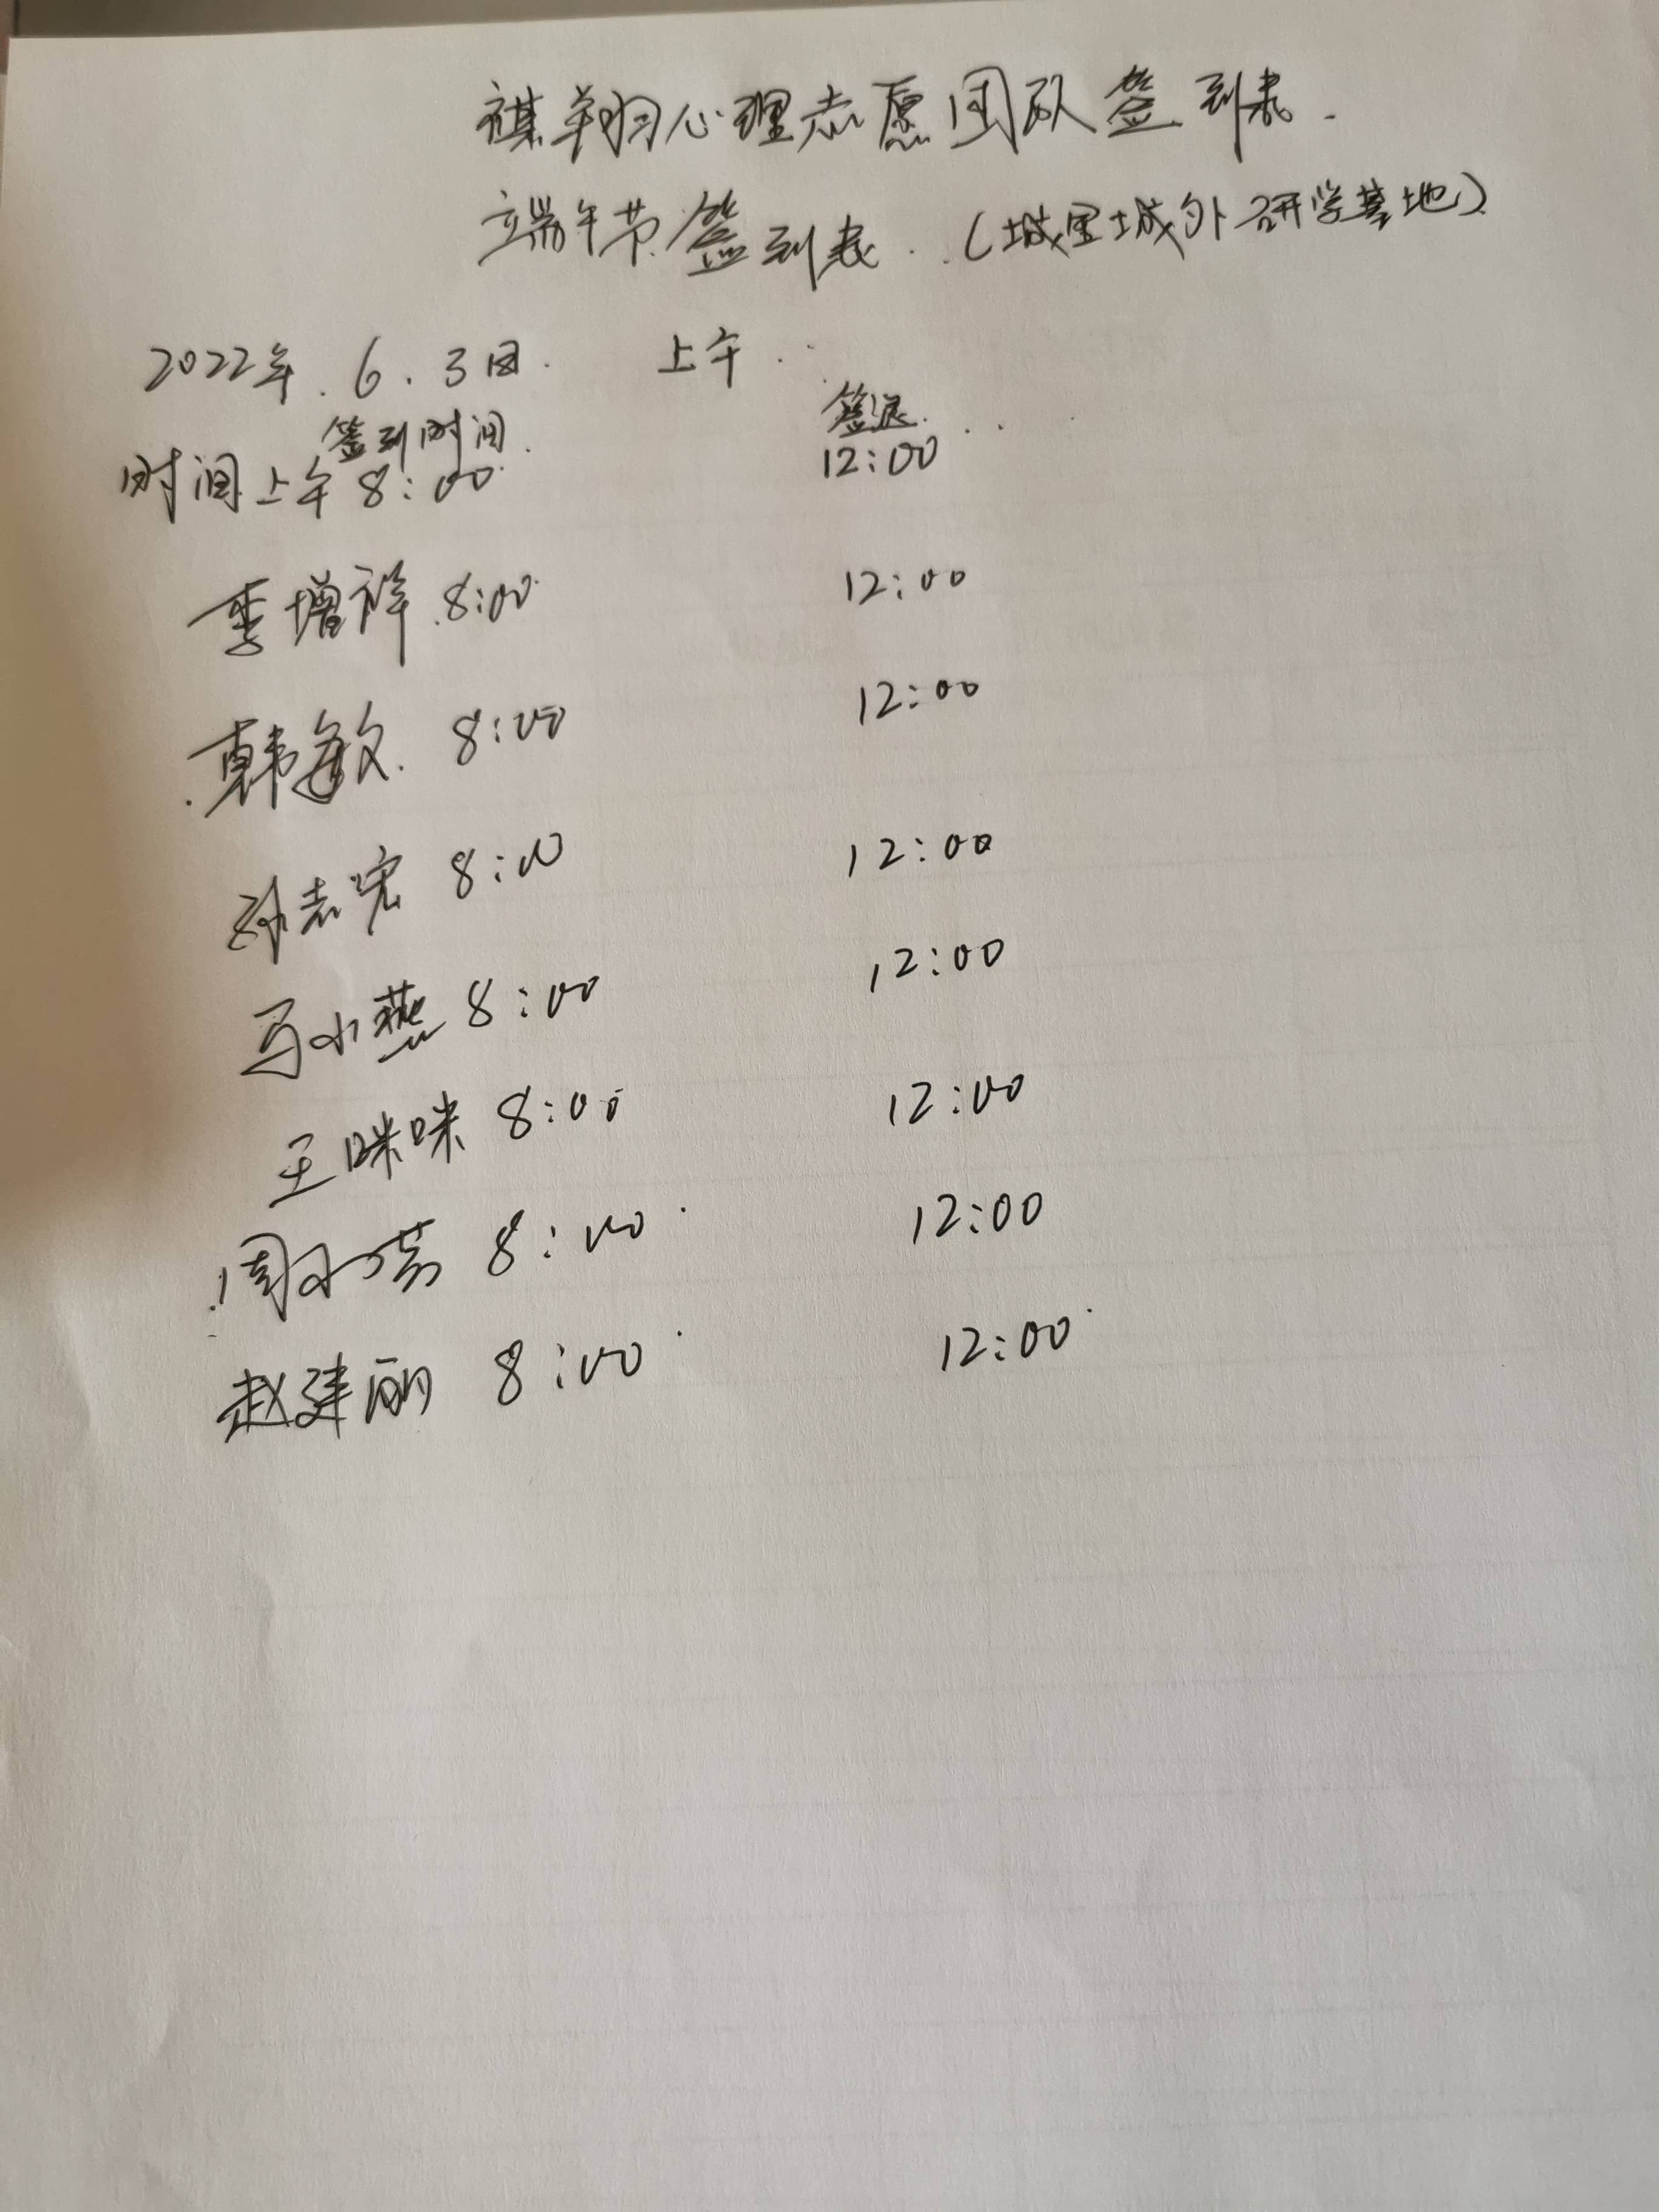 祺翔心理志愿团队签到表.
端午节签到表..(城里城外研学基地)
2022年.6.3日. 上午
签到时间. 签退
时间上午8:00 12:00
李增祥 8:00 12:00
韩敏. 8:00 12:00
孙志宏 8:00 12:00
马小燕 8:00 12:00
王咪咪 8:00 12:00
周小 8:00 12:00
赵建丽 8:00 12:00